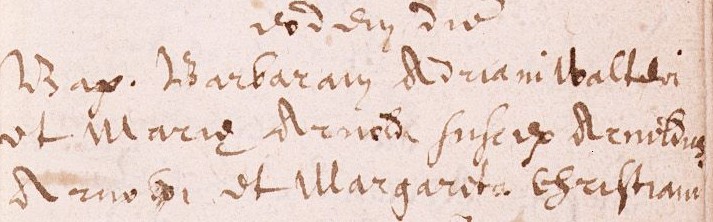 eodem die
Bap. Barbaram Adriani Walteri
et Marie Arnoldi suscep Arnoldus
Arnoldi et Margareta Christiani